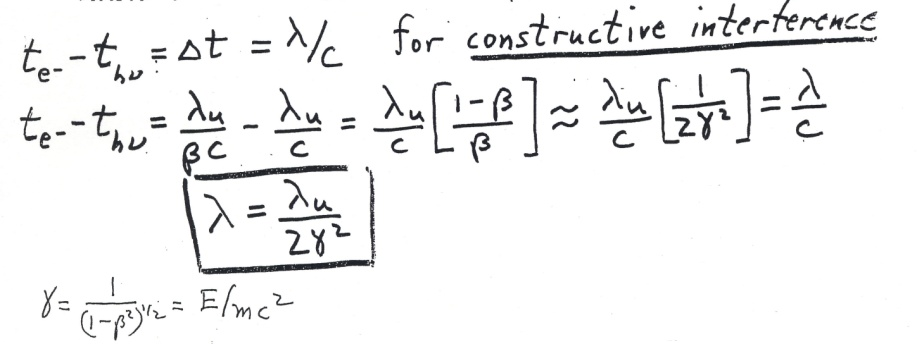 t_e- - t_hν = Δt = λ/c for constructive interference
t_e- - t_hν = λ_u/βC - λ_u/c = λ_u/c [1-β/β] ≈ λ_u/c [1/2γ²] = λ/c
λ = λ_u/2γ²
γ = 1/(1-β²)^1/2 = E/mc²